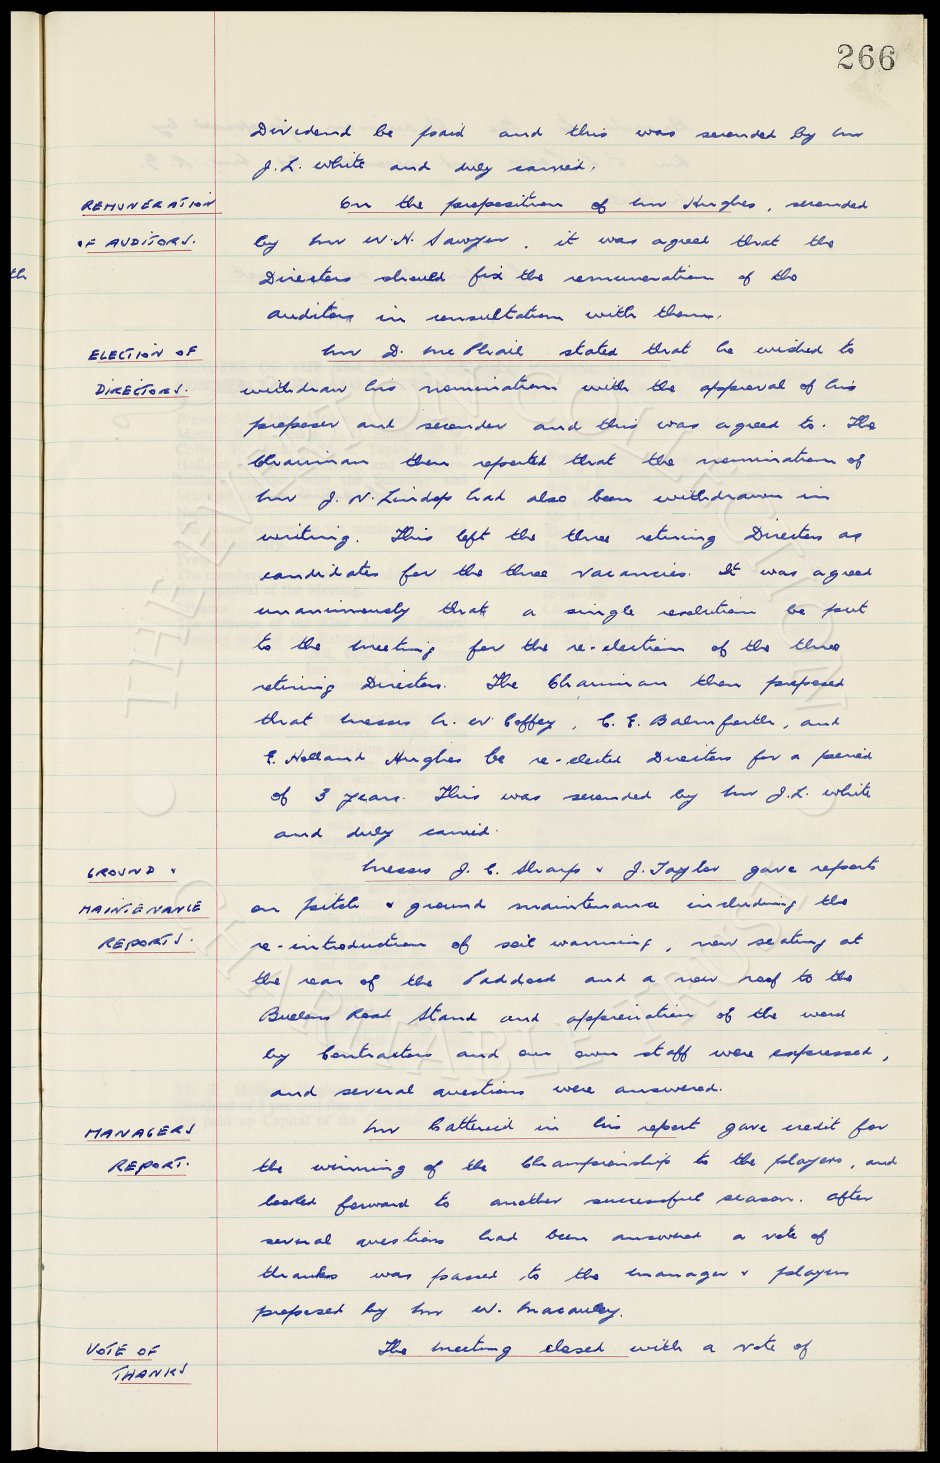 266
Dividend be paid and this was seconded by Mr
J. L. White and duly carried.
REMUNERATION On the proposition of Mr Hughes, seconded
OF AUDITORS. by Mr W. H. Sawyer, it was agreed that the
Directors should fix the remuneration of the
auditors in consultation with them.
ELECTION OF Mr D. McPhail stated that he wished to
DIRECTORS. withdraw his nomination with the approval of his
proposer and seconder and this was agreed to. The
Chairman then reported that the nomination of
Mr J. N. Lindop had also been withdrawn in
writing. This left the three retiring Directors as
candidates for the three vacancies. It was agreed
unanimously that a single resolution be put
to the meeting for the re-election of the three
retiring Directors. The Chairman then proposed
that Messrs A. W Coffey, C. E. Balmforth, and
E. Holland Hughes be re-elected Directors for a period
of 3 years. This was seconded by Mr J. L. White
and duly carried.
GROUND & Messrs J. C. Sharp & J. Taylor gave reports
MAINTENANCE on pitch & ground maintenance including the
REPORTS. re-introduction of soil warming, new seating at
the rear of the Paddock and a new roof to the
Bullens Road Stand and appreciation of the work
by Contractors and our own staff were expressed,
and several questions were answered.
MANAGERS Mr Catterick in his report gave credit for
REPORT. the winning of the Championship to the players, and
looked forward to another successful season. After
several questions had been answered a vote of
thanks was passed to the manager & players
proposed by Mr W. Macauley.
VOTE OF The meeting closed with a vote of
THANKS
th
THE EVERTON COLLECTION
CHARITABLE TRUST